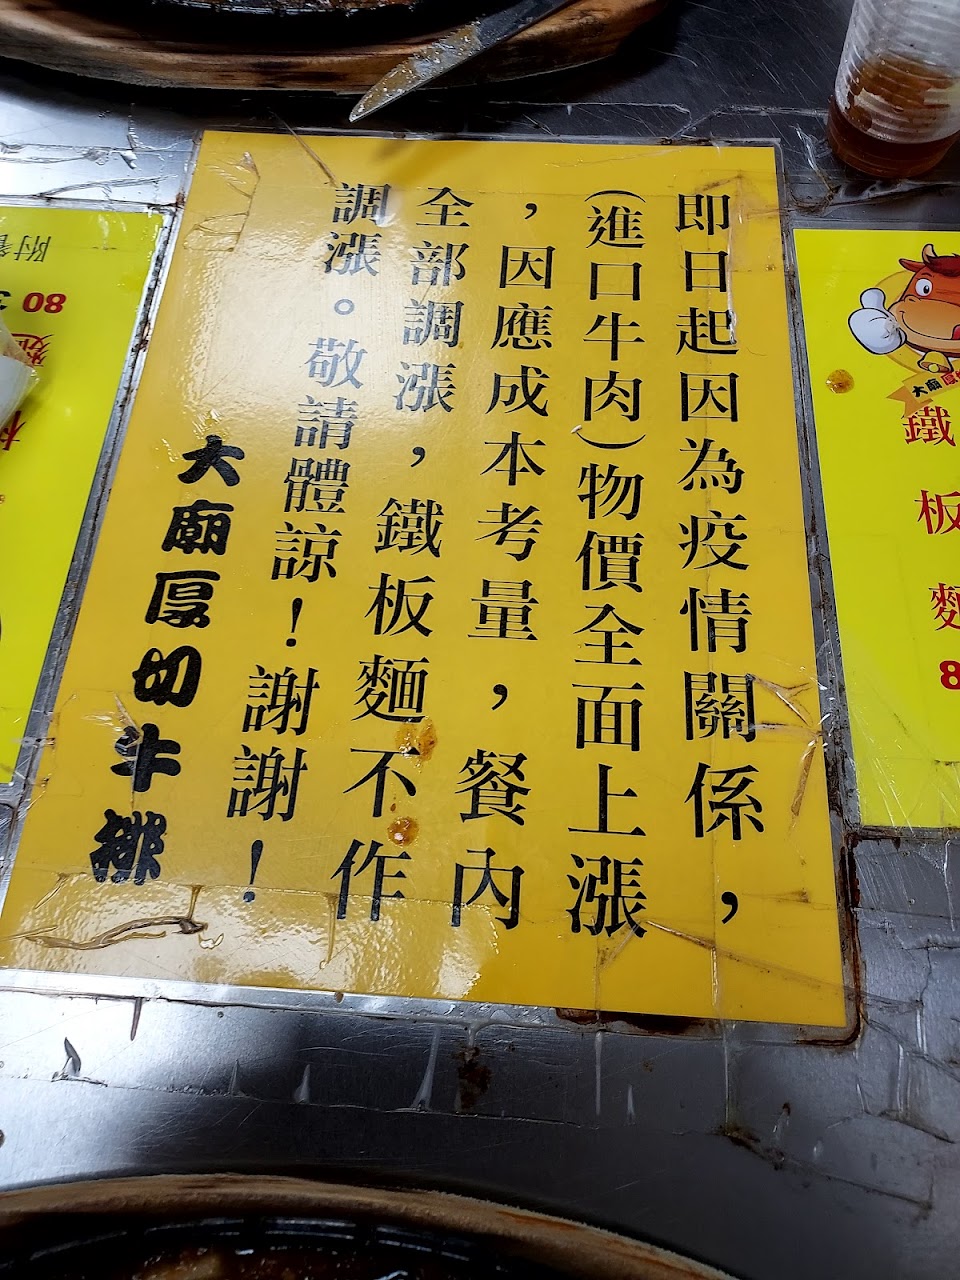 即日起因為疫情關係，
(進口牛肉)物價全面上漲
，因應成本考量，餐內
全部調漲，鐵板麵不作
調漲。敬請體諒！謝謝！
大廟厚切牛排
大廟厚
鐵板麵
8
附
80
麵